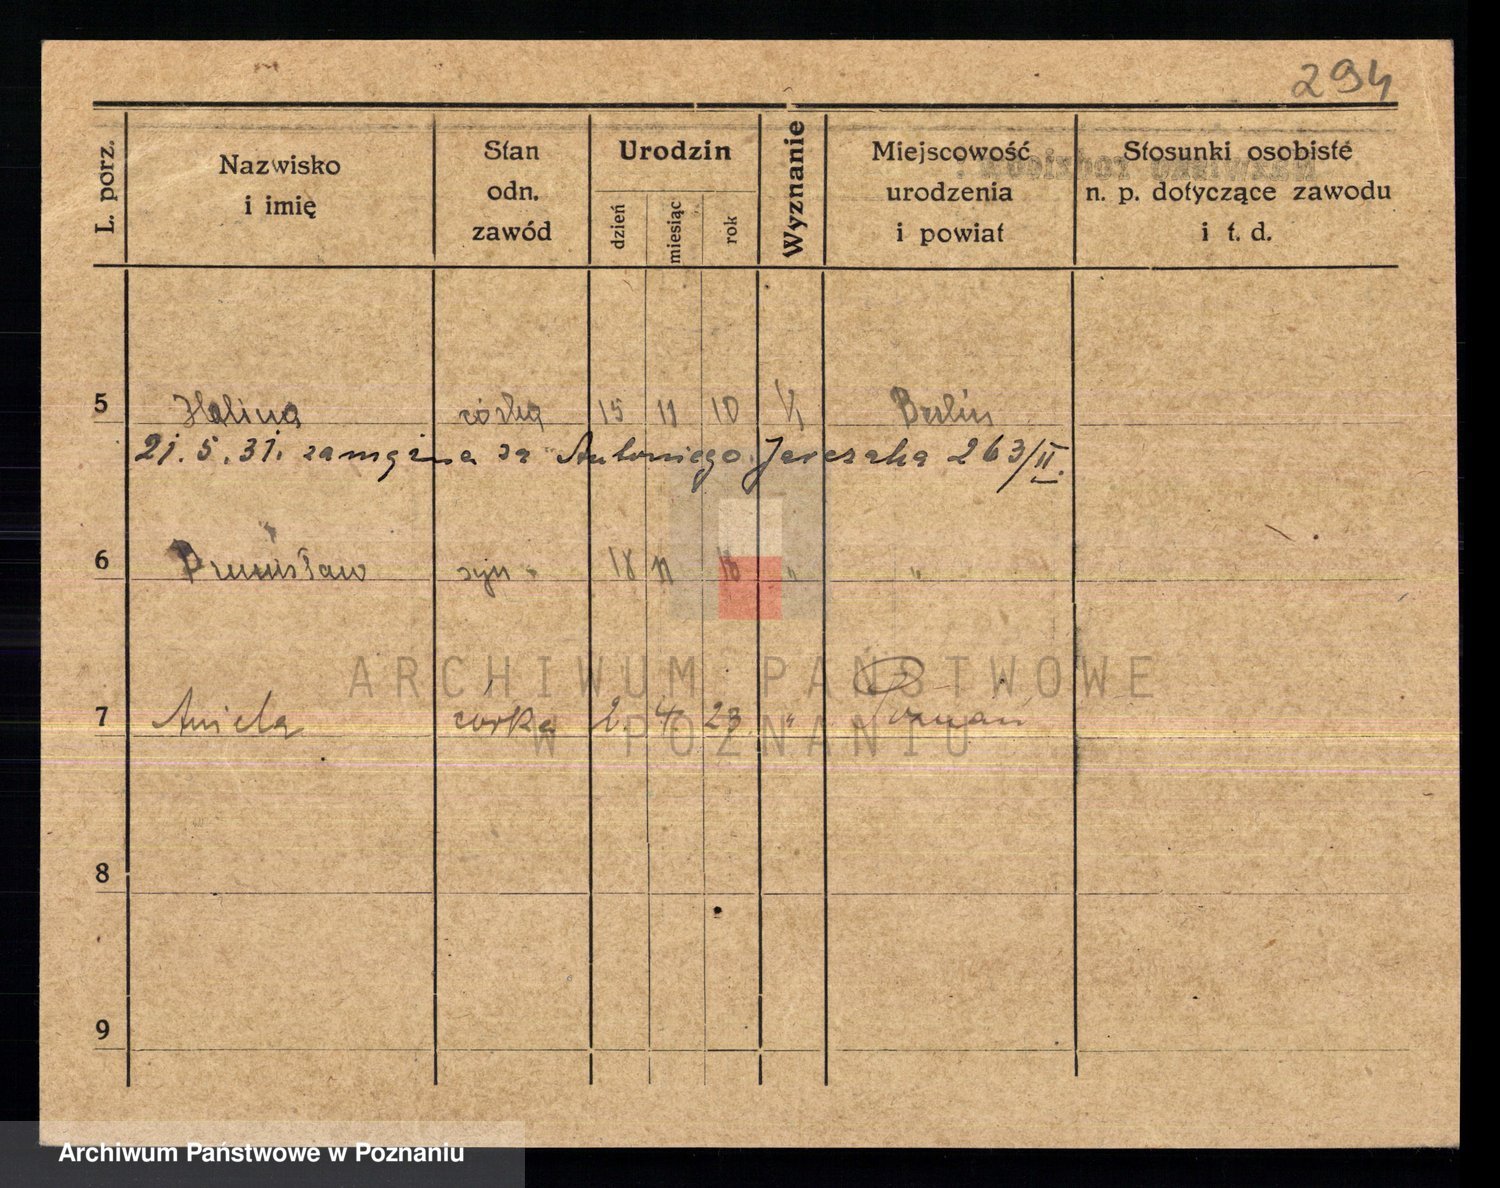 294
L. porz.
Nazwisko
i imię
Stan
odn.
zawód
Urodzin
dzień
miesiąc
rok
Wyznanie
Miejscowość
urodzenia
i powiat
Stosunki osobiste
n. p. dotyczące zawodu
i t. d.
5 Halina córka 15 11 10 Berlin
21. 5. 31. zamężna za Antoniego Jareszaka 263/II.
6 syn 18 11 18 " "
ARCHIWUM PAŃSTWOWE
7 Aniela córka 2. 4. 23. " Poznań
W POZNANIU
8
9
Archiwum Państwowe w Poznaniu